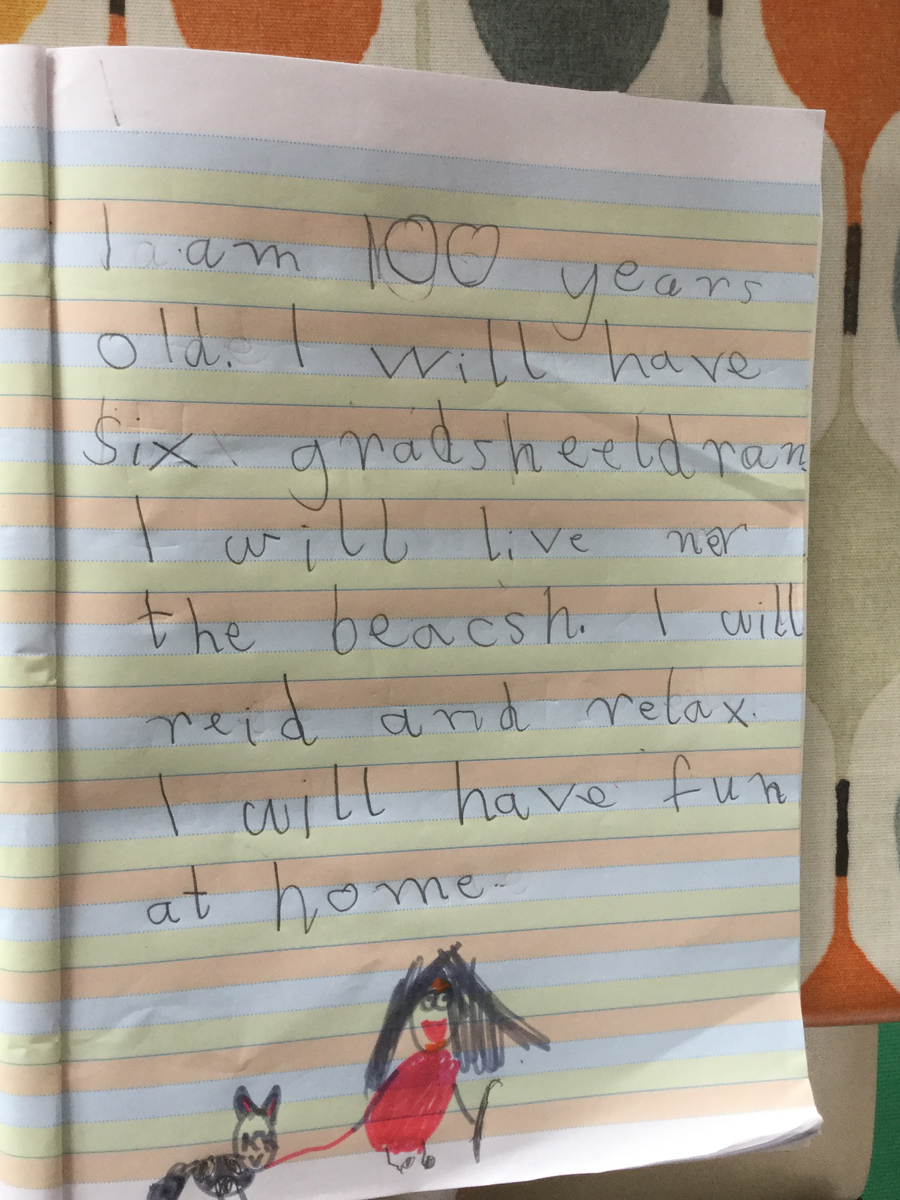 I am 100 years
old. I will have
six gradsheeldran
I will live ner
the beacsh. I will
reid and relax.
I will have fun
at home.